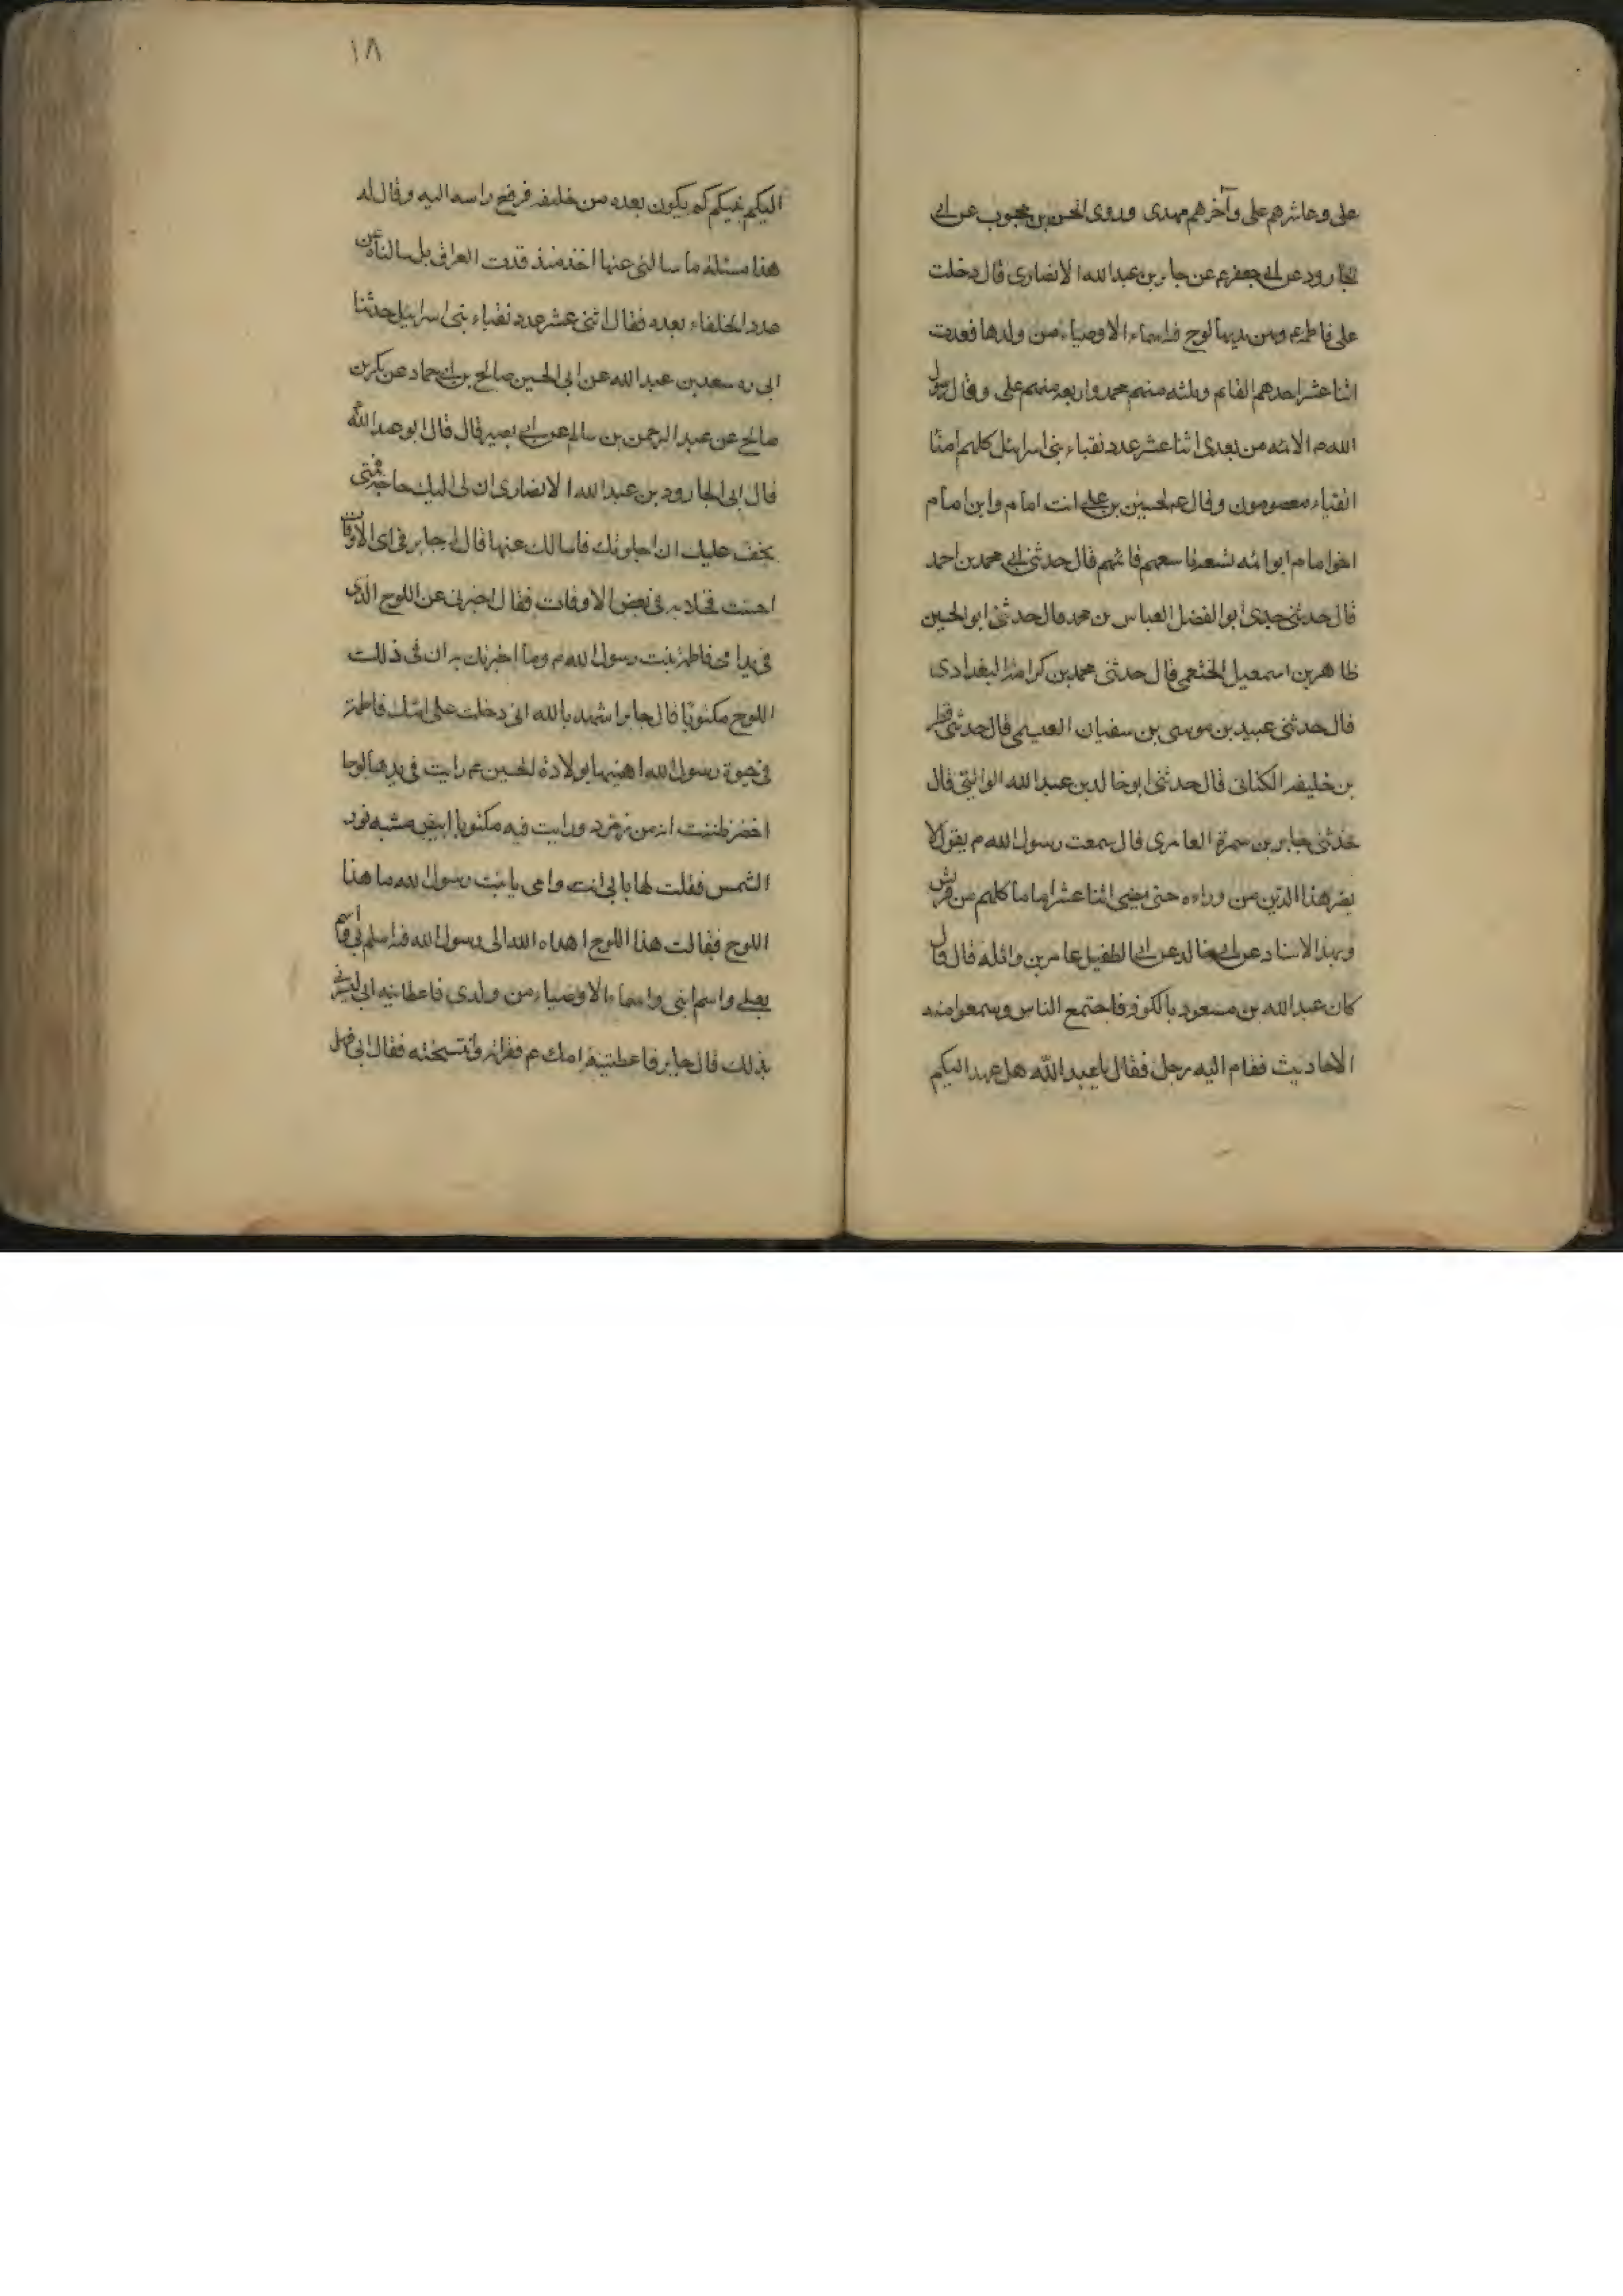 على وعاشرهم على وآخرهم مهدى وروى الحسن بن محبوب عن ابى
الجارود عن ابى جعفر ع عن جابر بن عبد الله الانصارى قال دخلت
على فاطمة ع وبين يديها لوح فيه اسماء الاوصياء من ولدها فعددت
اثنا عشر احدهم القائم وثلثه منهم محمد واربعه منهم على وقال رسول
الله ص الائمه من بعدى اثنا عشر عدد نقباء بنى اسرائيل كلهم امنا
اتقياء معصومون وقال ع لحسين بن على انت امام وابن امام
اخو امام ابو ائمه تسعه تاسعهم قائمهم قال حدثنى ابى محمد بن احمد
قال حدثنى جدى ابو الفضل العباس بن محمد قال حدثنى ابو الحسين
طاهر بن اسمعيل الخثعمى قال حدثنى محمد بن كرامة البغدادى
قال حدثنى عبيد بن موسى بن سفيان العبسى قال حدثنى فطر
بن خليفه الكنانى قال حدثنى ابو خالد بن عبد الله الوالبى قال
حدثنى جابر بن سمرة العامرى قال سمعت رسول الله ص يقول لا
يضر هذا الدين من وراءه حتى يمضى اثنا عشر اماما كلهم من قريش
وبهذا الاسناد عن ابى خالد عن ابى الطفيل عامر بن واثله قال قال
كان عبد الله بن مسعود بالكوفه فاجتمع الناس وسمعوا منه
الاحاديث فقام اليه رجل فقال يا عبد الله هل عهد اليكم
١٨
اليكم نبيكم كم يكون بعده من خليفه فرفع راسه اليه وقال له
هذا مسئلة ما سالنى عنها احد منذ قدمت العراق بل سالناه عن
عدد الخلفاء بعده فقال اثنى عشر عدد نقباء بنى اسرائيل حدثنا
ابى ره سعد بن عبد الله عن ابى الحسين صالح بن ابى حماد عن بكر بن
صالح عن عبد الرحمن بن سالم عن ابى بصير قال قال ابو عبد الله
قال ابى الجارود بن عبد الله الانصارى ان لى اليك حاجة فمتى
يخف عليك ان اخلو بك فاسالك عنها قال له جابر فى اى الاوقات
احببت فخلا به فى بعض الاوقات فقال اخبرنى عن اللوح الذى
فى يدا مى فاطمة بنت رسول الله ص وما اخبرتك به ان فى ذلك
اللوح مكتوبا قال جابر اشهد بالله انى دخلت على امك فاطمة
فى حيوة رسول الله اهنيها بولادة الحسين ع رايت فى يدها لوحا
اخضر ظننت انه من زمرد ورايت فيه مكتوبا ابيض شبه نور
الشمس فقلت لها بابى انت وامى يا بنت رسول الله ما هذا
اللوح فقالت هذا اللوح اهداه الله الى رسول الله فيه اسم ابى واسم
بعلى واسم ابنى واسماء الاوصياء من ولدى فاعطانيه ابى ليبشرنى
بذلك قال جابر فاعطتنيه امك ع فقراته وانتسخته فقال ابى فهل